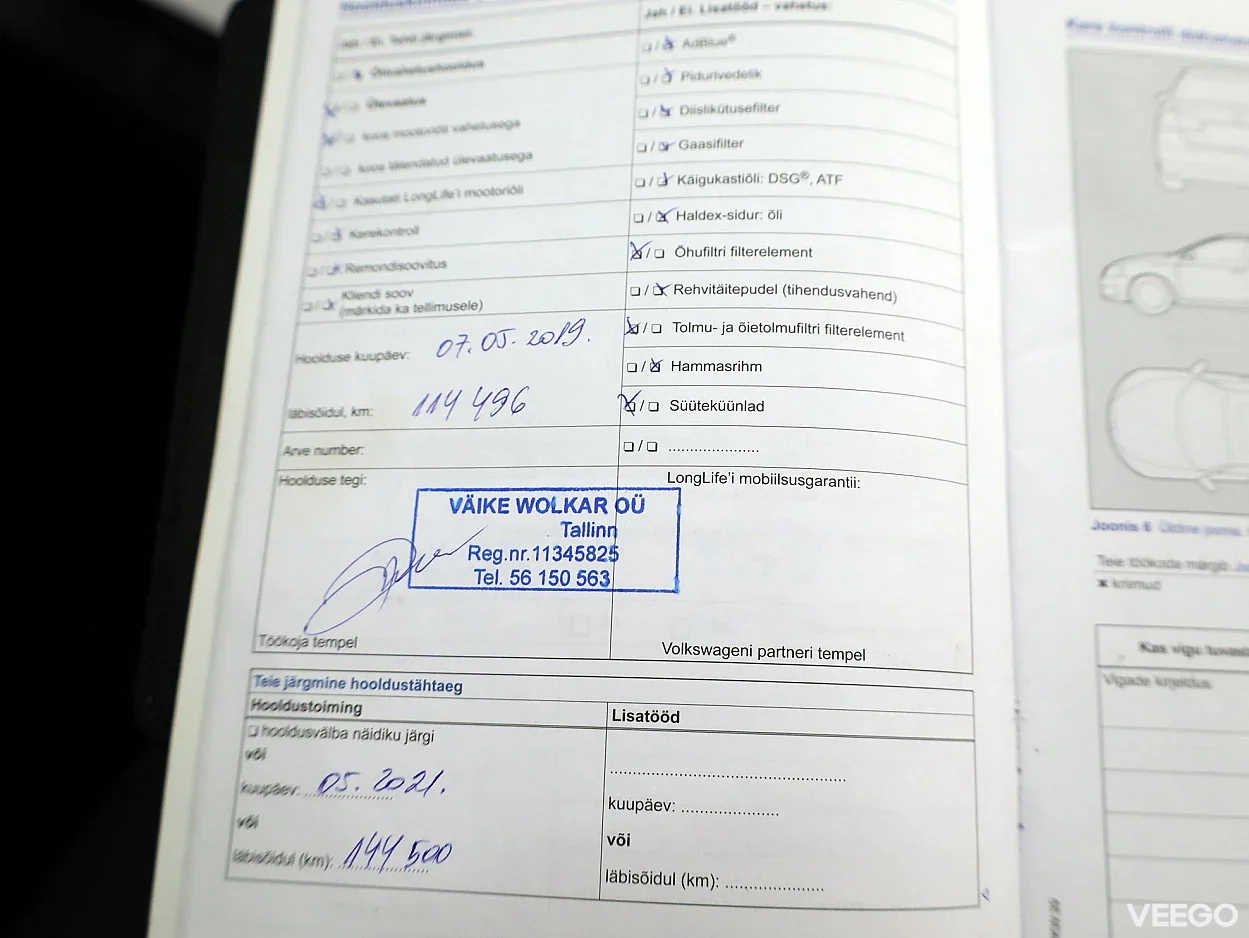 Jah / Ei. Lisatööd – vahetus:
AdBlue®
Õlivahetushooldus
Pidurivedelik
Ülevaatus
Diislikütusefilter
koos mootoriõli vahetusega
Gaasifilter
koos laiendatud ülevaatusega
Käigukastiõli: DSG®, ATF
Kasutati LongLife'i mootoriõli
Haldex-sidur: õli
Kerekontroll
Õhufiltri filterelement
Remondisoovitus
Rehvitäitepudel (tihendusvahend)
Kliendi soov
(märkida ka tellimusele)
Tolmu- ja õietolmufiltri filterelement
Hoolduse kuupäev: 07.05.2019.
Hammasrihm
läbisõidul, km: 114 496
Süüteküünlad
Arve number:
....................
Hoolduse tegi:
LongLife'i mobiilsusgarantii:
VÄIKE WOLKAR OÜ
Tallinn
Reg.nr.11345825
Tel. 56 150 563
Töökoja tempel
Volkswageni partneri tempel
Teie järgmine hooldustähtaeg
Hooldustoiming
Lisatööd
hooldusvälba näidiku järgi
või
kuupäev: 05.2021.
kuupäev: ....................
või
või
läbisõidul (km): 144 500
läbisõidul (km): ....................
Joonis 6
Teie töökoda märgib
kriimud
Kas vigu
Vigade kirjeldus
VEEGO